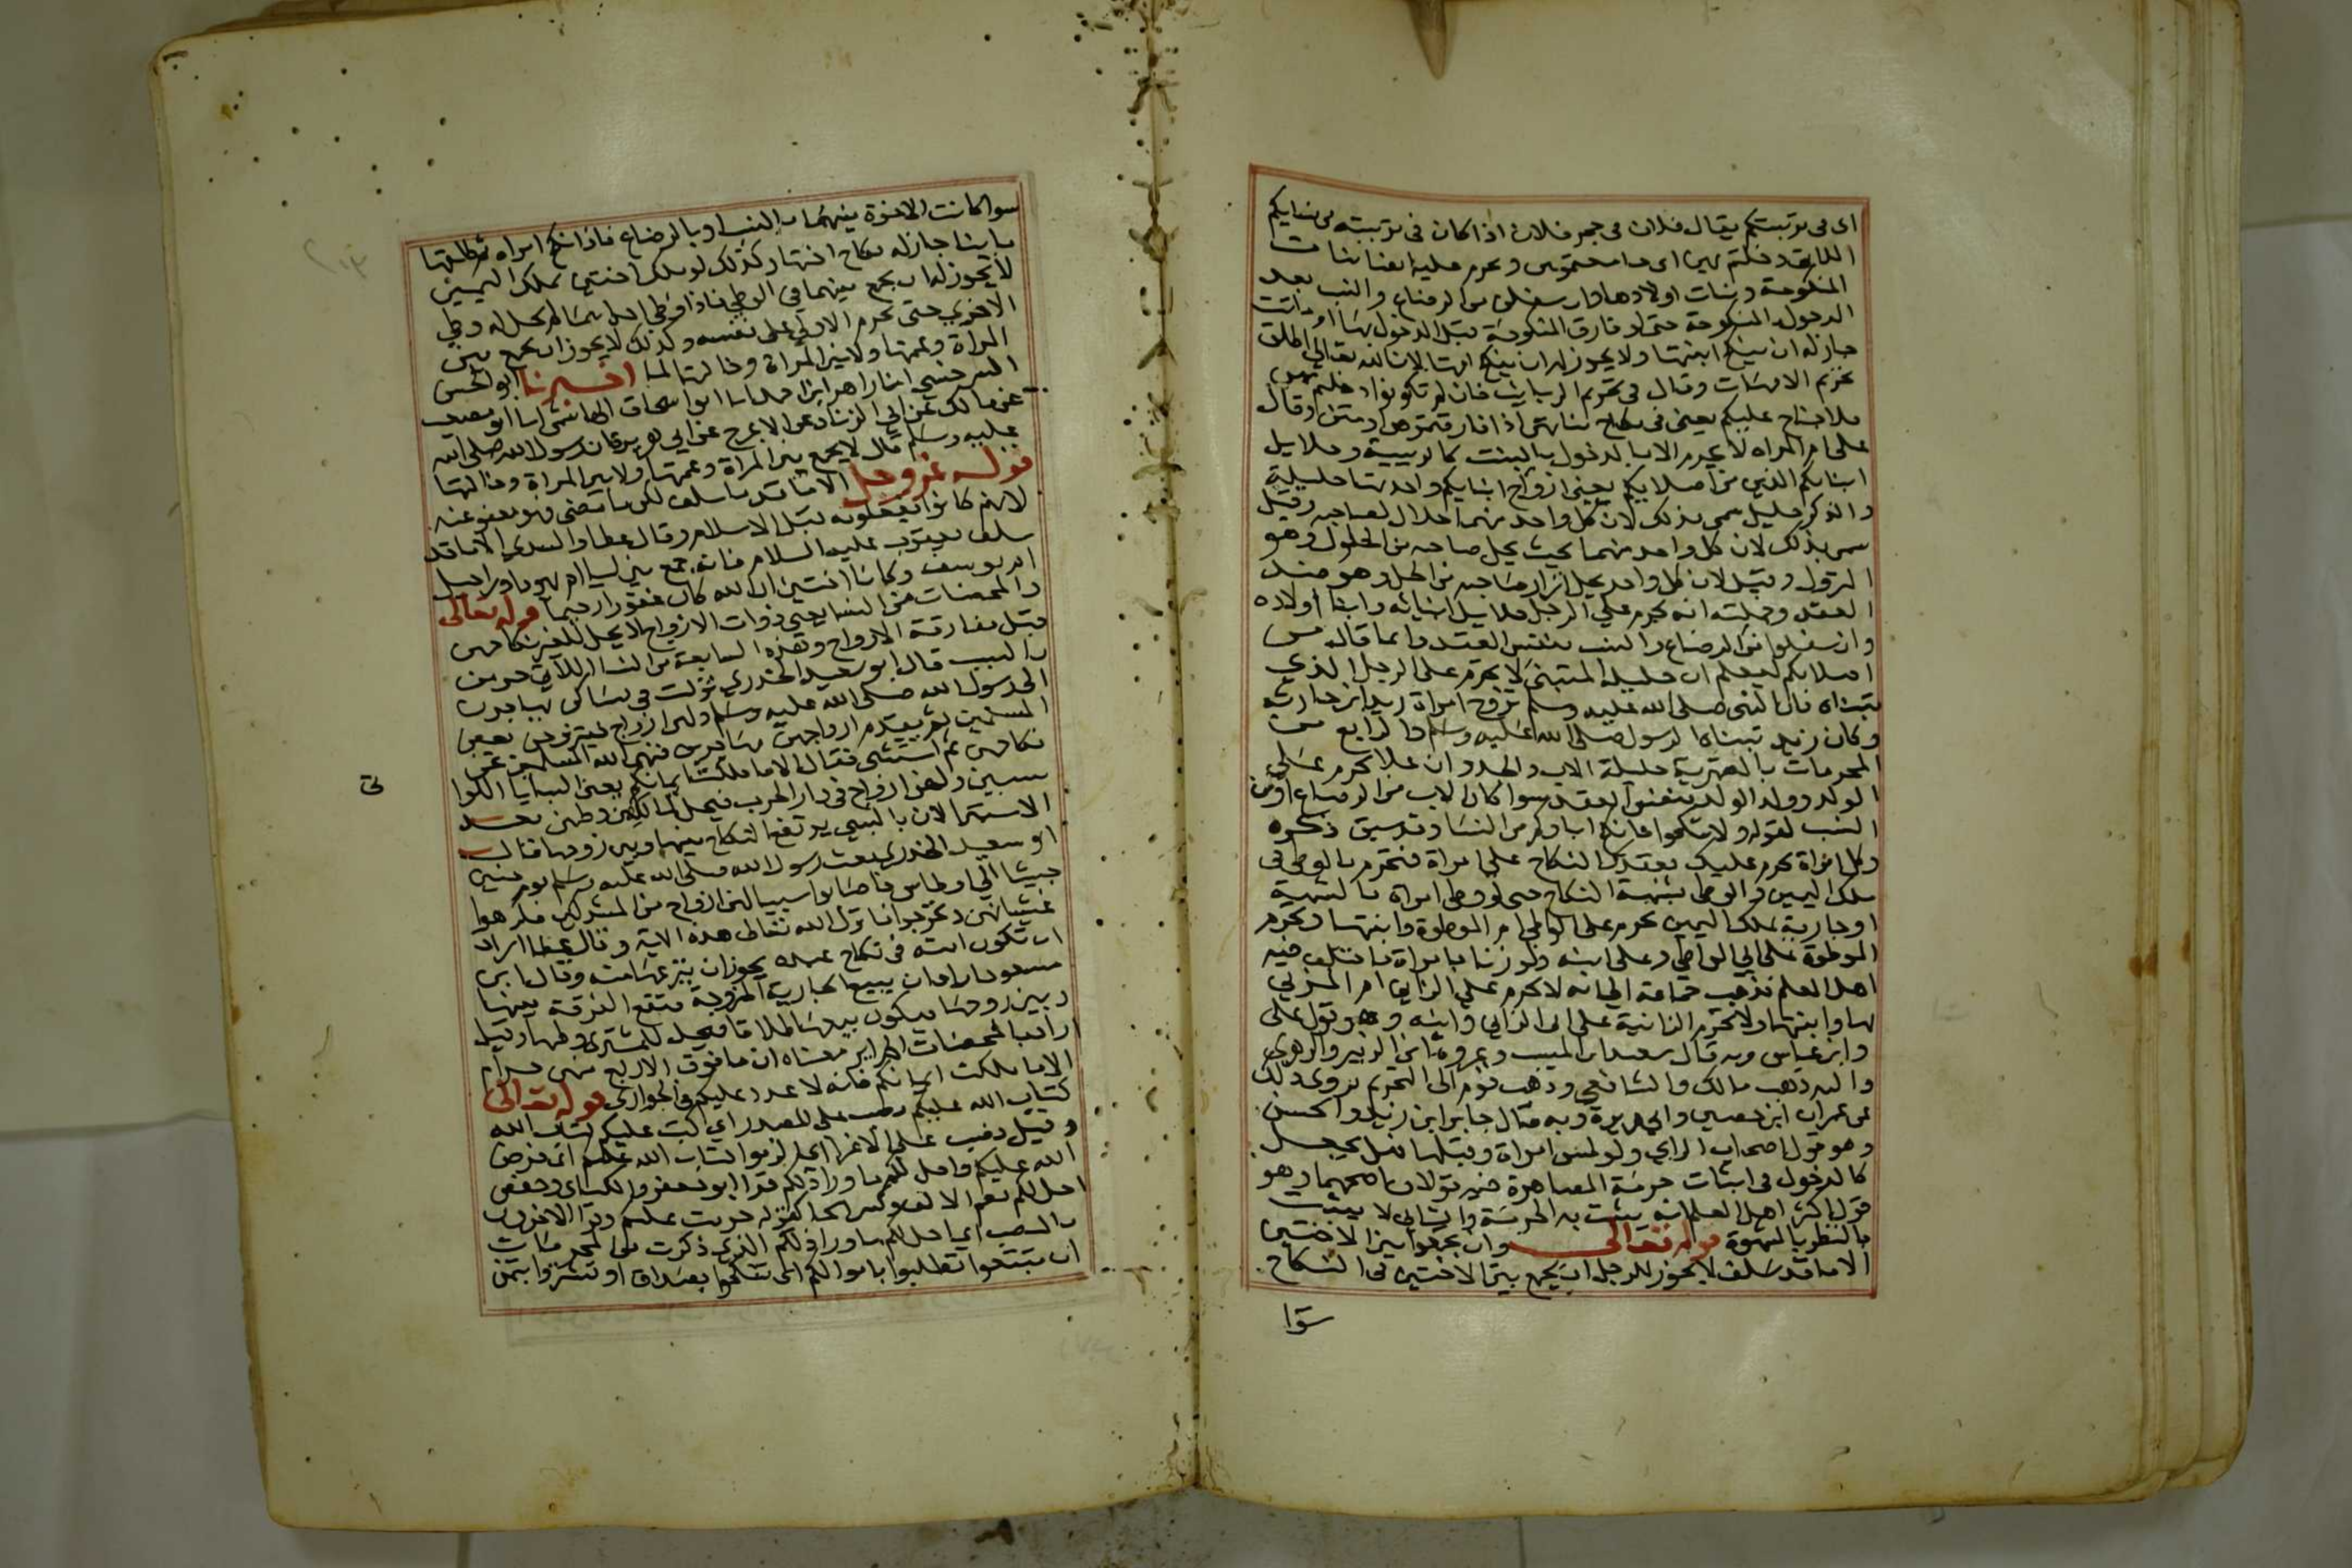 اى فى تربيتكم يقال فلان فى حجر فلان اذا كان فى تربيته من نسايكم
اللاتى دخلتم بهن اى جامعتموهن ويحرم عليه ايضا بنات
المنكوحة وبنات اولادها وان سفلن من الرضاع والنسب بعد
الدخول بالمنكوحة حتى لو فارق المنكوحة قبل الدخول بها او ماتت
جاز له ان ينكح ابنتها ولا يجوز له ان ينكح امها لان الله تعالى اطلق
تحريم الامهات وقال فى تحريم الربايب فان لم تكونوا دخلتم بهن
فلا جناح عليكم يعنى فى نكاح بناتهن اذا فارقتموهن او متن وقال
على ام المراه لا تحرم الا بالدخول بالبنت كالربيبة وحلايل
ابنايكم الذين من اصلابكم يعنى ازواج ابنايكم واحدتها حليلة
والذكر حليل سمى بذلك لان كل واحد منهما حلال لصاحبه وقيل
سمى بذلك لان كل واحد منهما بحيث يحل صاحبه من الحلول وهو
النزول وقيل لان كل واحد يحل ازار صاحبه من الحل وهو ضد
العقد وجملته انه يحرم على الرجل حلايل ابنائه وابنا اولاده
وان سفلوا من الرضاع والنسب بنفس العقد وانما قال من
اصلابكم ليعلم ان حليلة المتبنى لا تحرم على الرجل الذى
تبناه فان النبى صلى الله عليه وسلم تزوج امراة زيد ابن حارثه
وكان زيد تبناه الرسول صلى الله عليه وسلم والرابع من
المحرمات بالصهرية حليلة الاب والجد وان علا يحرم على
الولد وولد الولد بنفس العقد سوا كان الاب من الرضاع او من
النسب لقوله ولا تنكحوا ما نكح اباوكم من النسا وقد سبق ذكره
وكل امراة تحرم عليك بعقد النكاح على امراة فتحرم بالوطى فى
ملك اليمين والوطى بشبهة النكاح حتى لو وطى امراة بالشبهة
او جارية بملك اليمين تحرم على الواطى ام الموطوة وابنتها وتحرم
الموطوة على ابى الواطى وعلى ابنه ولو زنا بامراة فاختلف فيه
اهل العلم فذهب جماعة الى انه لا تحرم على الزانى ام المزنى
بها وابنتها ولا تحرم الزانية على ابى الزانى وابنه وهو قول على
وابن عباس وبه قال سعيد ابن المسيب وعروة ابن الزبير والزهرى
واليه ذهب مالك والشافعى وذهب قوم الى التحريم يروى ذلك
عن عمران ابن حصين وابى هريرة وبه قال جابر ابن زيد والحسن
وهو قول اصحاب الراى ولو لمس امراة وقبلها فهل يجعل
كالدخول فى اثبات حرمة المصاهرة فيه قولان اصحهما وهو
قول اكثر اهل العلم انه يثبت به الحرمة والثانى لا يثبت
بالنظر بالشهوة قوله تعالى وان تجمعوا بين الاختين
الا ما قد سلف لا يجوز للرجل ان يجمع بين الاختين فى النكاح
سوا
سوا كانت الاخوة بينهما بالنسب او بالرضاع فاذا نكح امراه ثم طلقها
باينا جاز له نكاح اختها وكذلك لو ملك اختين بملك اليمين
لا يجوز له ان يجمع بينهما فى الوطى فاذا وطى احداهما لم يحل له وطى
الاخرى حتى يحرم الاولى على نفسه وكذلك لا يجوز ان يجمع بين
المراة وعمتها ولا بين المراة وخالتها لما اخبرنا ابو الحسن
السرخسى اخبرنا زاهر ابن احمد انا ابو اسحاق الهاشمى انا ابو مصعب
عن مالك عن ابى الزناد عن الاعرج عن ابى هريره ان رسول الله صلى الله
عليه وسلم قال لا يجمع بين المراة وعمتها ولا بين المراة وخالتها
قوله عز وجل الا ما قد سلف لكن ما مضى فهو معفو عنه
لانهم كانوا يفعلونه قبل الاسلام وقال عطا والسدى الا ما قد
سلف يعقوب عليه السلام فانه جمع بين ليا ام يهودا وراحيل
ام يوسف وكانتا اختين ان الله كان غفورا رحيما قوله تعالى
والمحصنات من النسا يعنى ذوات الازواج لا يحل للغير نكاحهن
قبل مفارقة الازواج وهذه السابعة من النسا اللاتى حرمن
بالسبب قال ابو سعيد الخدرى نزلت فى نسا كن يهاجرن
الى رسول الله صلى الله عليه وسلم ولهن ازواج فيتزوجن بعض
المسلمين ثم يقدم ازواجهن مهاجرين فنهى الله المسلمين عن
نكاحهن ثم استثنى فقال الا ما ملكت ايمانكم يعنى السبايا اللوا
سبين ولهن ازواج فى دار الحرب فيحل لمالكهن وطئهن بعد
الاستبرا لان بالسبى يرتفع النكاح بينها وبين زوجها قال
ابو سعيد الخدرى بعث رسول الله صلى الله عليه وسلم يوم حنين
جيشا الى اوطاس فاصابوا سبيا لهن ازواج من المشركين فكرهوا
غشيانهن وتحرجوا فانزل الله تعالى هذه الاية وقال عطا اراد
ان تكون امته فى نكاح عبده يجوز ان ينزعها منه وقال ابن
مسعود اراد ان يبيع الجارية المزوجة فتقع الفرقة بينها
وبين زوجها فيكون بيعها طلاقا فيحل للمشترى وطئها وقيل
اراد بالمحصنات الحراير معناه ان ما فوق الاربع منهن حرام
الا ما ملكت ايمانكم فانه لا عدد عليكم فى الجوارى قوله تعالى
كتاب الله عليكم نصب على المصدر اى كتب عليكم كتاب الله
وقيل نصب على الاغرا اى الزموا كتاب الله عليكم اى فرض
الله عليكم واحل لكم ما ورا ذلكم قرا ابو جعفر والكساى وحفص
احل لكم بضم الالف وكسر الحا كقوله حرمت عليكم وقرا الاخرون
بالنصب اى احل لكم ما ورا ذلكم الذى ذكرت من المحرمات
ان تبتغوا تطلبوا باموالكم اى تنكحوا بصداق او تشتروا بثمن